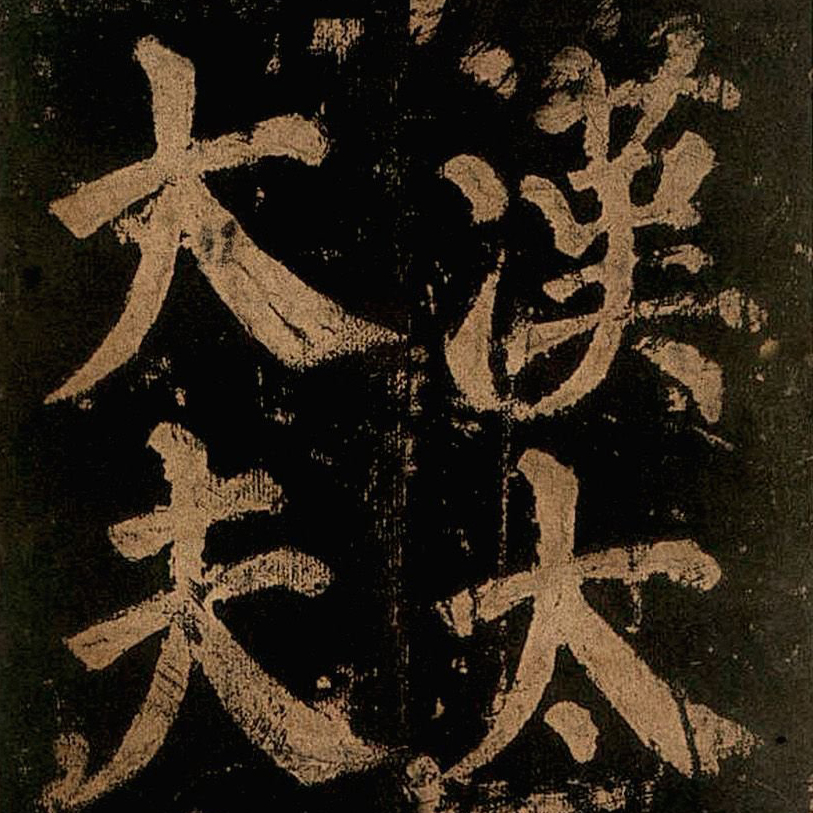 漢太
大夫